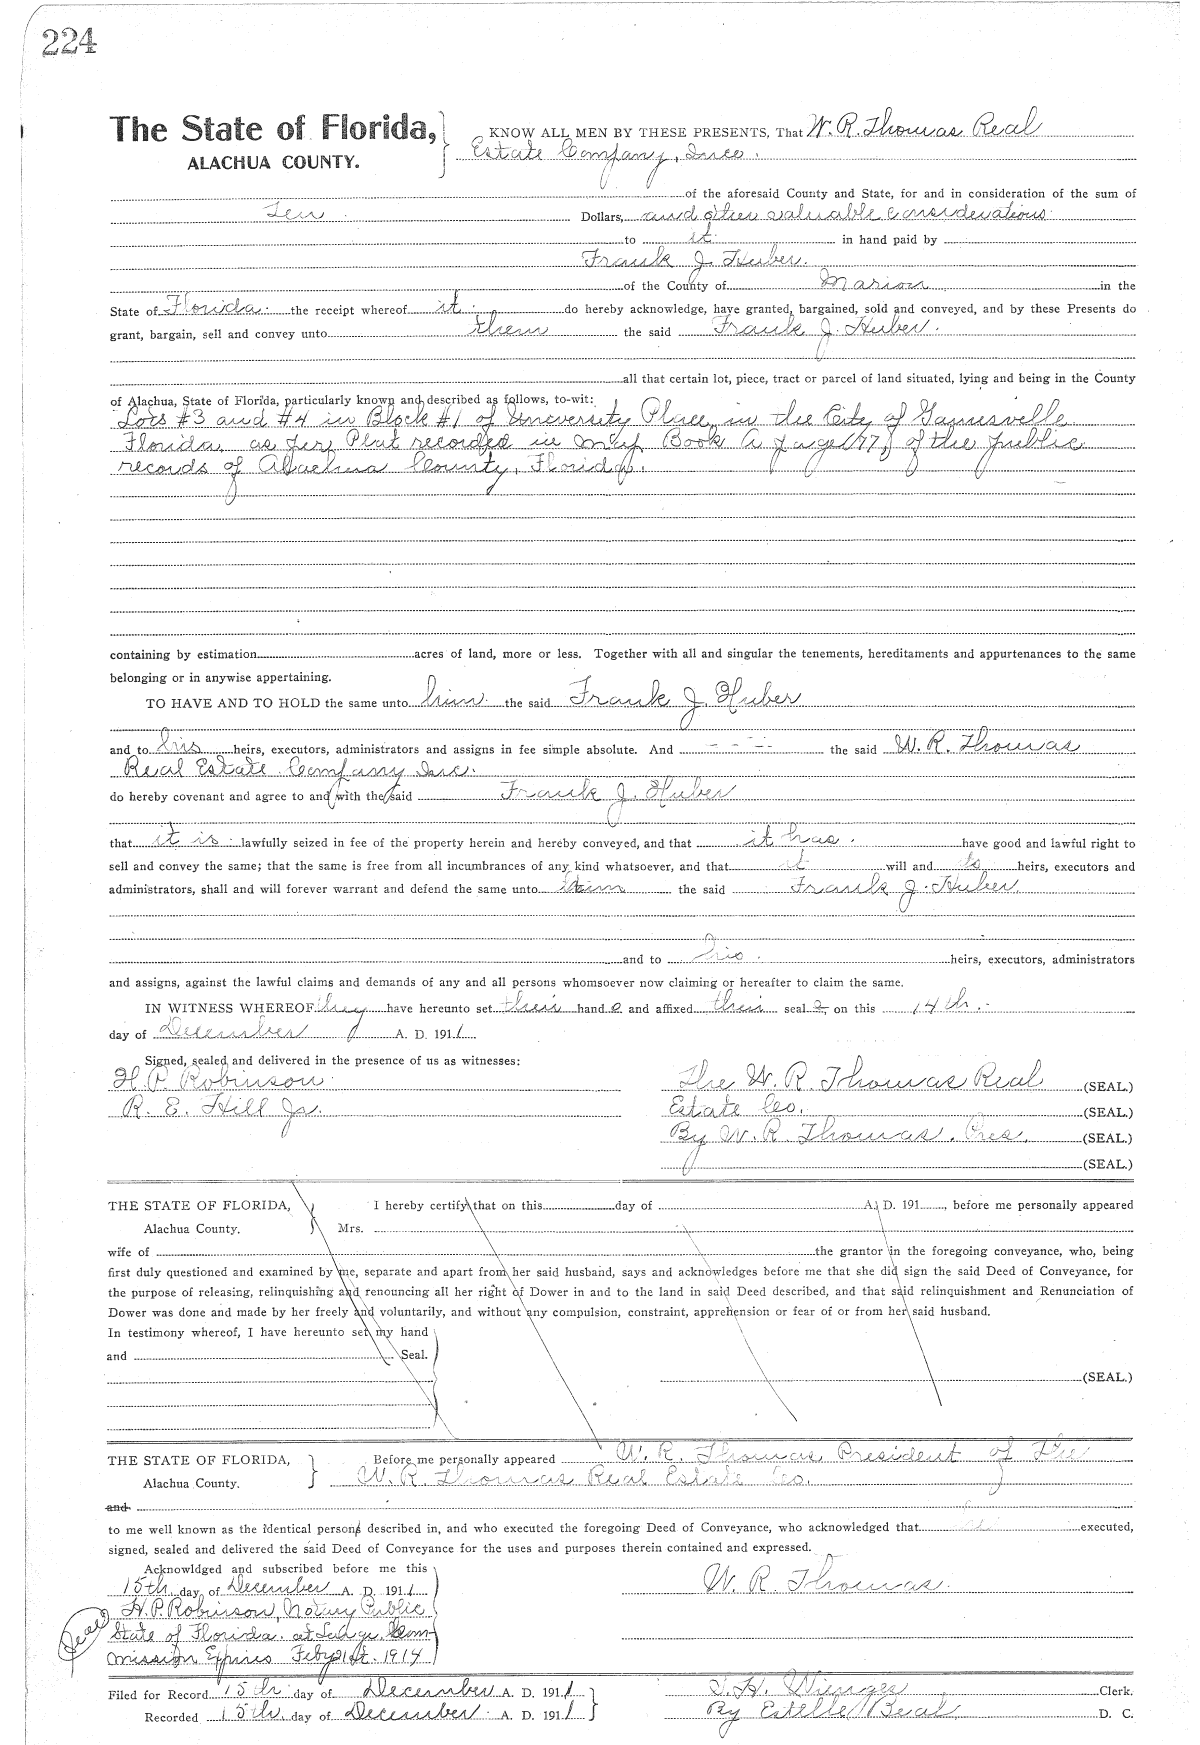 224
The State of Florida,
ALACHUA COUNTY.
KNOW ALL MEN BY THESE PRESENTS, That W. R. Thomas Real
Estate Company, Inco.
of the aforesaid County and State, for and in consideration of the sum of
Ten Dollars, and other valuable considerations
to it in hand paid by
Frank J. Huber.
of the County of Marion in the
State of Florida the receipt whereof it do hereby acknowledge, have granted, bargained, sold and conveyed, and by these Presents do
grant, bargain, sell and convey unto them the said Frank J. Huber.
all that certain lot, piece, tract or parcel of land situated, lying and being in the County
of Alachua, State of Florida, particularly known and described as follows, to-wit:
Lots #3 and #4 in Block #1 of University Place, in the City of Gainesville
Florida, as per Plat recorded in Book A page 177, of the public
records of Alachua County, Florida.
containing by estimation acres of land, more or less. Together with all and singular the tenements, hereditaments and appurtenances to the same
belonging or in anywise appertaining.
TO HAVE AND TO HOLD the same unto him the said Frank J. Huber
and to his heirs, executors, administrators and assigns in fee simple absolute. And - - - - the said W. R. Thomas
Real Estate Company Inc.
do hereby covenant and agree to and with the said Frank J. Huber
that it is lawfully seized in fee of the property herein and hereby conveyed, and that it has have good and lawful right to
sell and convey the same; that the same is free from all incumbrances of any kind whatsoever, and that it will and heirs, executors and
administrators, shall and will forever warrant and defend the same unto him the said Frank J. Huber.
and to his heirs, executors, administrators
and assigns, against the lawful claims and demands of any and all persons whomsoever now claiming or hereafter to claim the same.
IN WITNESS WHEREOF they have hereunto set their hand and affixed their seal on this 14th.
day of December A. D. 1911.
Signed, sealed and delivered in the presence of us as witnesses:
H. P. Robinson
R. E. Hill Jr.
The W. R. Thomas Real (SEAL.)
Estate Co. (SEAL.)
By W. R. Thomas, Pres. (SEAL.)
(SEAL.)
THE STATE OF FLORIDA, I hereby certify that on this day of A. D. 191 , before me personally appeared
Alachua County. Mrs.
wife of the grantor in the foregoing conveyance, who, being
first duly questioned and examined by me, separate and apart from her said husband, says and acknowledges before me that she did sign the said Deed of Conveyance, for
the purpose of releasing, relinquishing and renouncing all her right of Dower in and to the land in said Deed described, and that said relinquishment and Renunciation of
Dower was done and made by her freely and voluntarily, and without any compulsion, constraint, apprehension or fear of or from her said husband.
In testimony whereof, I have hereunto set my hand
and Seal.
(SEAL.)
THE STATE OF FLORIDA, Before me personally appeared W. R. Thomas President of The
Alachua County. W. R. Thomas Real Estate Co.
and
to me well known as the identical persons described in, and who executed the foregoing Deed of Conveyance, who acknowledged that he executed,
signed, sealed and delivered the said Deed of Conveyance for the uses and purposes therein contained and expressed.
Acknowldged and subscribed before me this
15th. day of December A. D. 1911.
H. P. Robinson, Notary Public
State of Florida. at Large. Com-
mission Expires Feby 21st. 1914
Seal
W. R. Thomas.
Filed for Record 15th day of December A. D. 1911
Recorded 15th. day of December A. D. 1911
S. H. Wienges Clerk.
By Estelle Beal D. C.